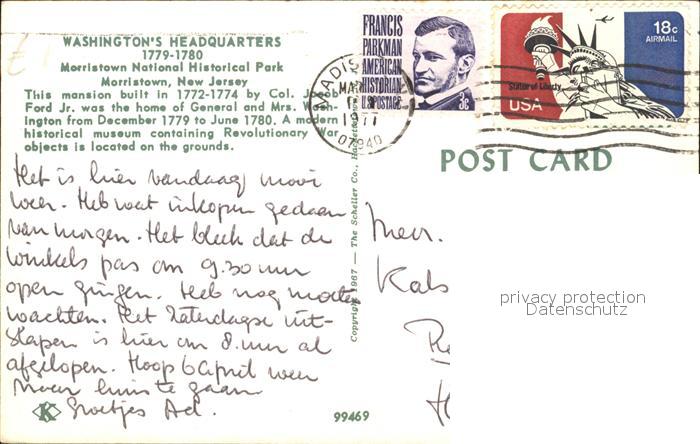 WASHINGTON'S HEADQUARTERS
1779-1780
Morristown National Historical Park
Morristown, New Jersey
This mansion built in 1772-1774 by Col. Jacob
Ford Jr. was the home of General and Mrs. Wash-
ington from December 1779 to June 1780. A modern
historical museum containing Revolutionary War
objects is located on the grounds.
FRANCIS
PARKMAN
AMERICAN
HISTORIAN
U.S. POSTAGE
3c
MADIS
MAR
1977
07940
18c
AIRMAIL
Statue of Liberty
USA
POST CARD
Het is hier vandaag mooi
weer. Heb wat inkopen gedaan
van morgen. Het bleek dat de
winkels pas om 9.30 uur
open gingen. Heb nog moeten
wachten. Het Zaterdagse uit-
slapen is hier om 8. uur al
afgelopen. Hoop 6 April weer
naar huis te gaan
Groetjes Ad.
Copyright 1967 — The Scheller Co., Hackettstown
Mevr.
Kals
K
99469
privacy protection
Datenschutz